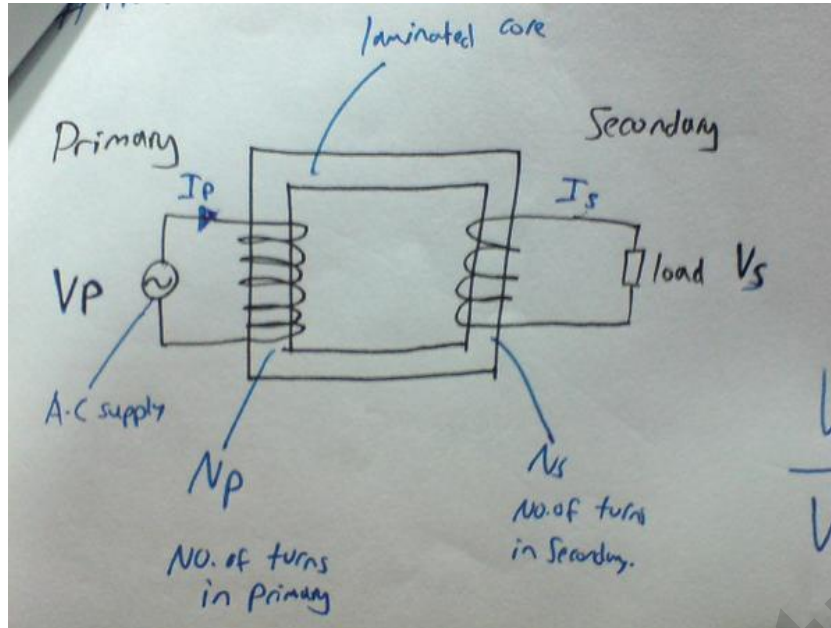 laminated core
Primary
Secondary
Ip
Is
Vp
load Vs
A.C supply
Np
Ns
No. of turns
in Secondary.
No. of turns
in primary
V
V